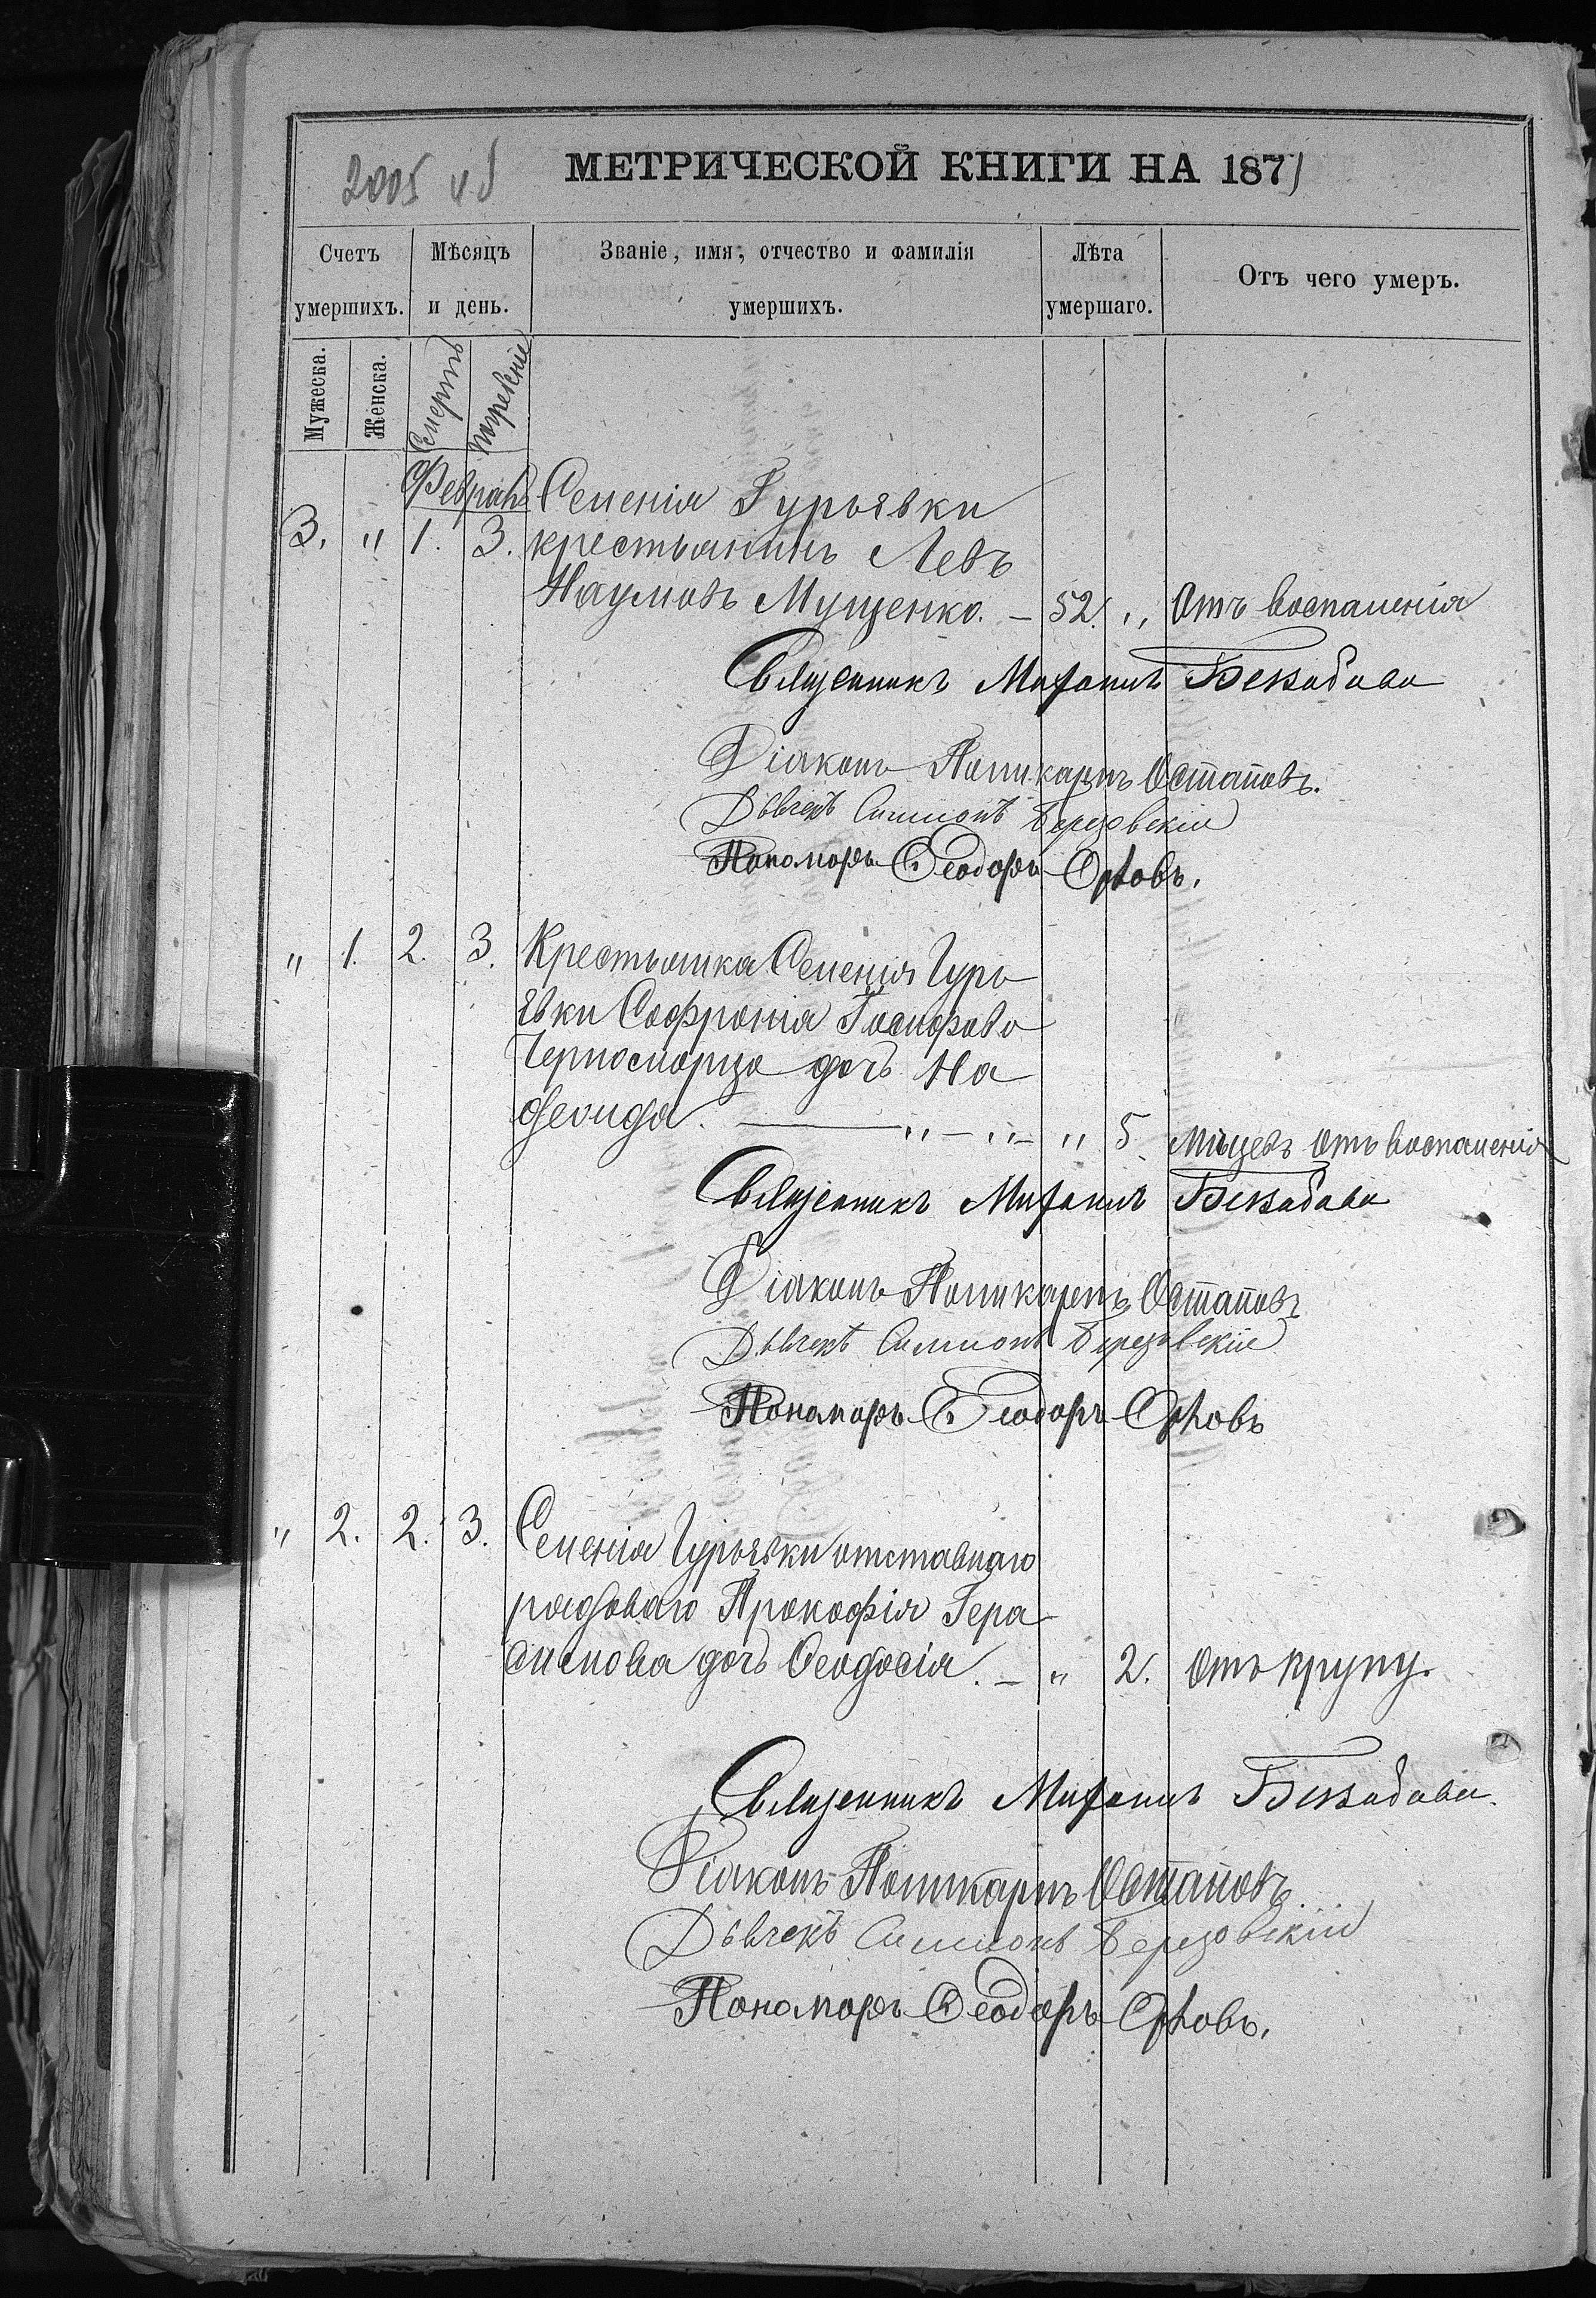 2005 ч б
МЕТРИЧЕСКОЙ КНИГИ НА 1871
Счетъ умершихъ.
Мѣсяцъ и день.
Званіе, имя, отчество и фамилія умершихъ.
Лѣта умершаго.
Отъ чего умеръ.
Мужеска.
Женска.
Смерть
погребеніе
Февраль Селенія Гурьевки
3. " 1. 3. крестьянинъ Левъ
Наумовъ Мущенко. — 52. " Отъ воспаленія
Священникъ Михаилъ
Діаконъ Поликарпъ Остаповъ.
Дьячекъ Симеонъ Березовскій
Пономарь Ѳеодоръ Орловъ.
" 1. 2. 3. Крестьянина Селенія Гурь
евки Софронія Іосифова
Черноморца дочь На
" 5. мѣсяцевъ отъ воспаленія
Священникъ Михаилъ
Діаконъ Поликарпъ Остаповъ
Дьячекъ Симеонъ Березовскій
Пономарь Ѳеодоръ Орловъ
" 2. 2. 3. Селенія Гурьевки отставнаго
рядоваго Прокофія Гера
симова дочь Ѳеодосія. — " 2. Отъ крупу.
Священникъ Михаилъ
Діаконъ Поликарпъ Остаповъ
Дьячекъ Симеонъ Березовскій
Пономарь Ѳеодоръ Орловъ.